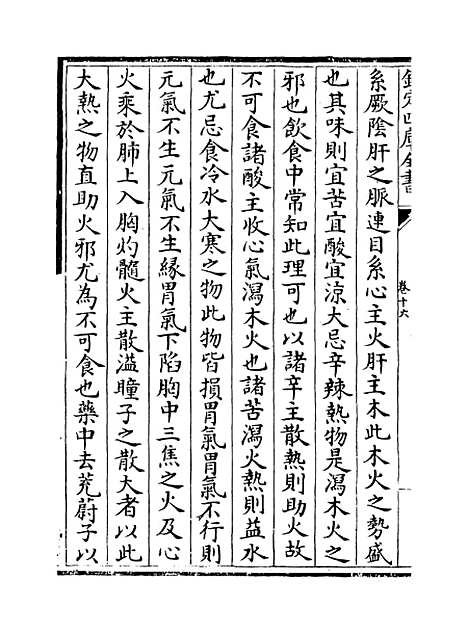 欽定四庫全書
卷十六
系厥陰肝之脈連目系心主火肝主木此木火之勢盛
也其味則宜苦宜酸宜涼大忌辛辣熱物是瀉木火之
邪也飲食中常知此理可也以諸辛主散熱則助火故
不可食諸酸主收心氣瀉木火也諸苦瀉火熱則益水
也尤忌食冷水大寒之物此物皆損胃氣胃氣不行則
元氣不生元氣不生緣胃氣下陷胸中三焦之火及心
火乘於肺上入胸灼髓火主散溢瞳子之散大者以此
大熱之物直助火邪尤為不可食也藥中去茺蔚子以